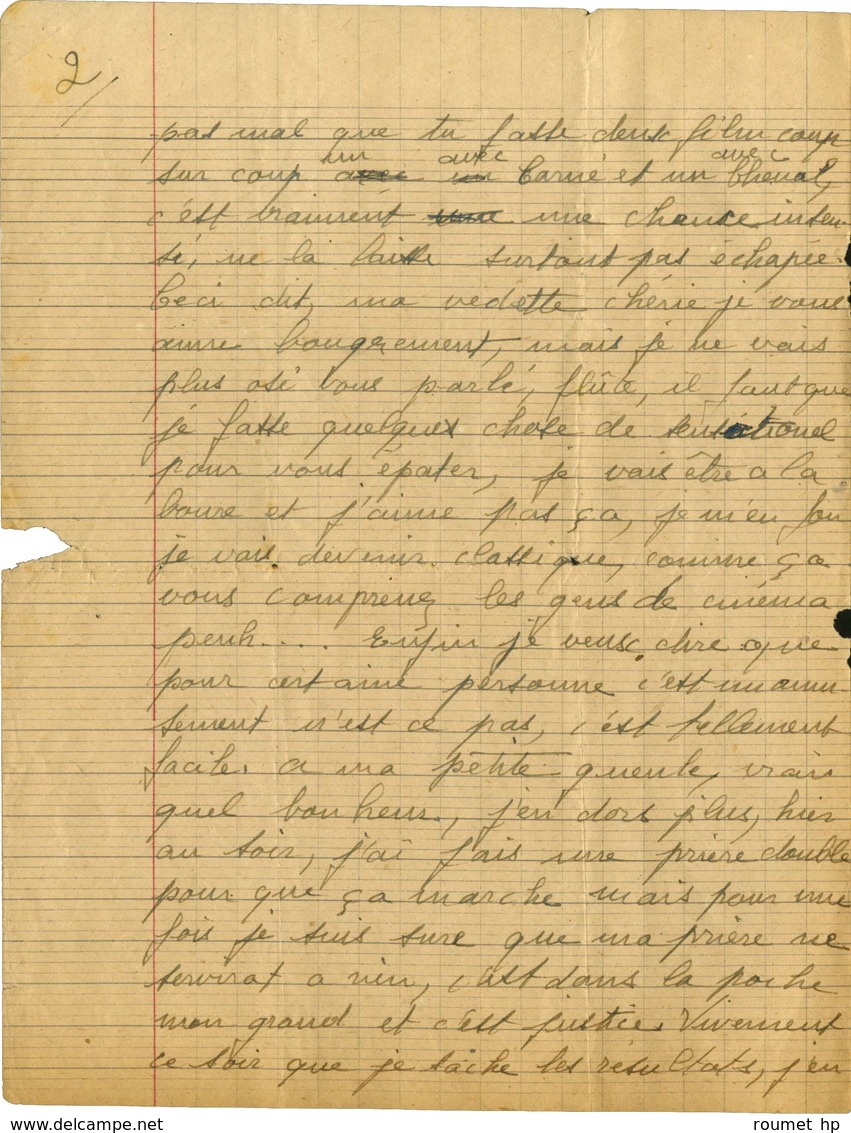 2/
pas mal que tu fasse deux film coup
un avec avec
sur coup avec un Carné et un Chenal,
c'est vraiment une une chance inten-
sé, ne la laisse surtout pas échapée.
Ceci dit, ma vedette chérie je vous
aime bougrement, mais je ne vais
plus osé vous parlé, flûte, il faut que
je fasse quelques chose de sensationel
pour vous épater, je vais être a la
boure et j'aime pas ça, je m'en fou
je vais devenir classique, comme ça
vous comprenez les gens de cinéma
peuh.... Enfin je veux dire que
pour certaine personne c'est un amu-
sement n'est ce pas, c'est tellement
facile. a ma petite gueule, vrai
quel bonheur, j'en dors plus, hier
au soir, j'ai fais une prière double
pour que ça marche mais pour une
fois je suis sure que ma prière ne
servirat a rien, c'est dans la poche
mon grand et c'est justice. Vivement
ce soir que je sache les résultats, j'en
roumet hp
www.delcampe.net